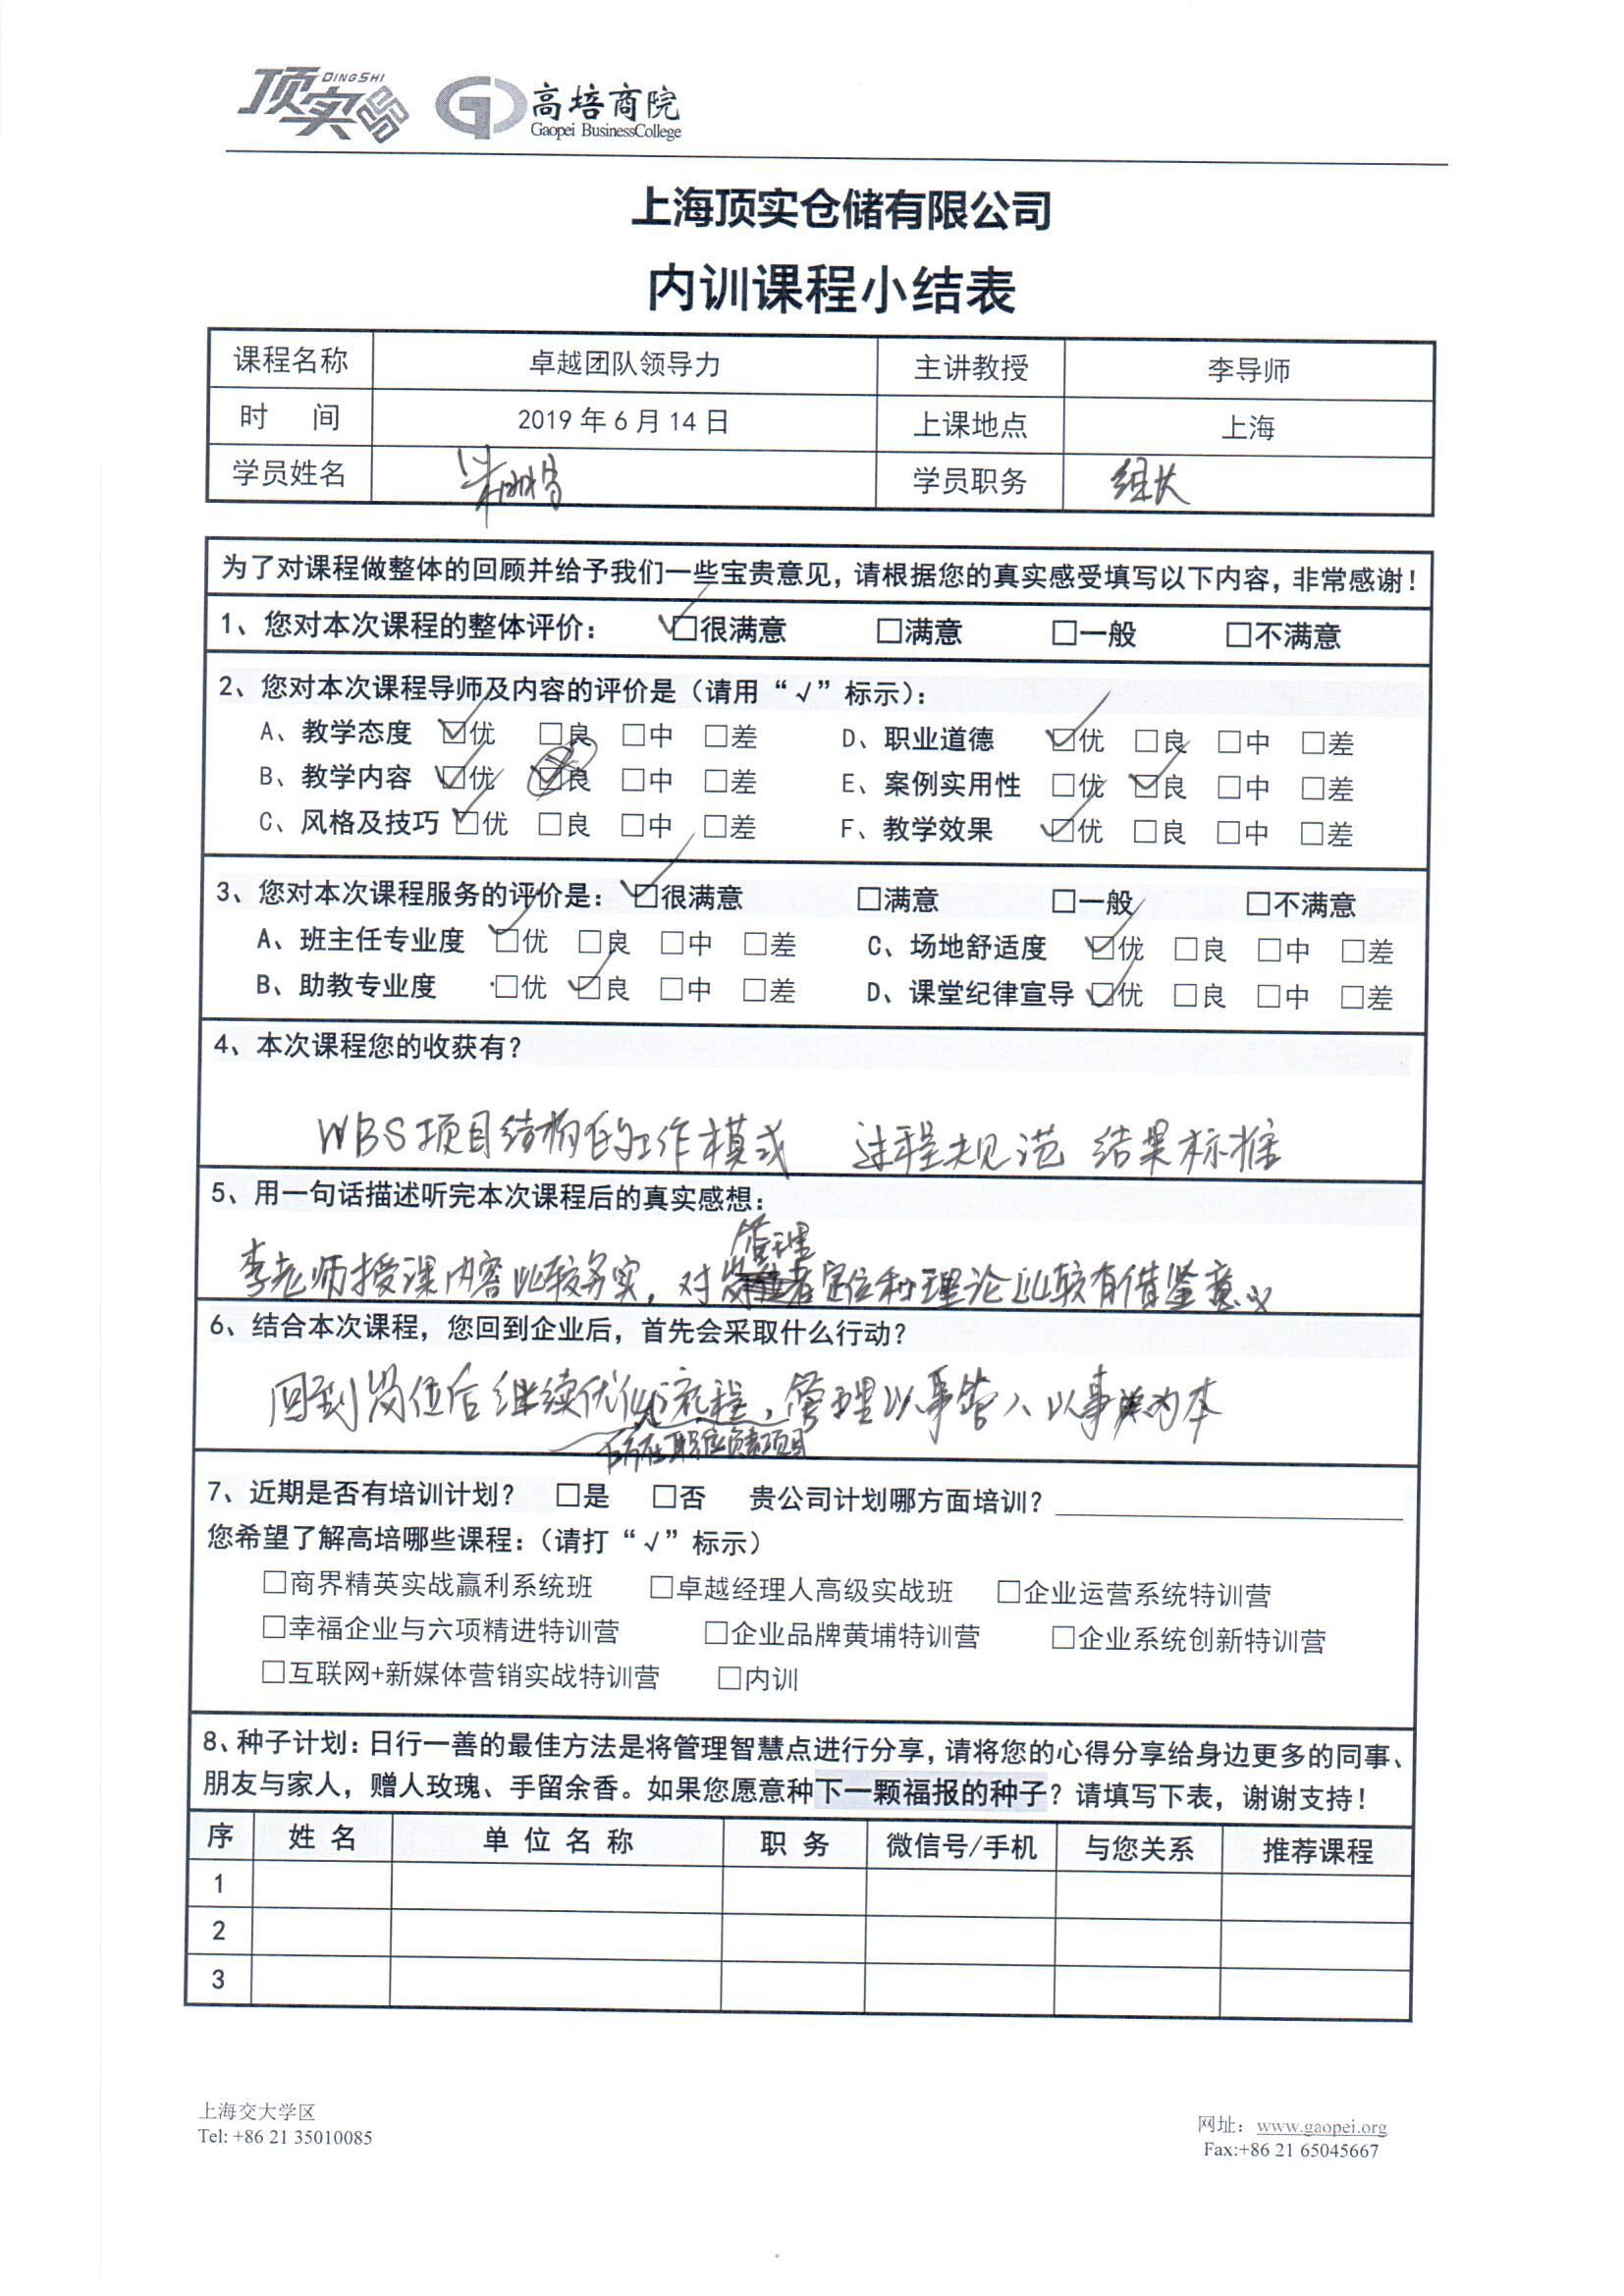 顶实 DINGSHI 高培商院
Gaopei BusinessCollege
上海顶实仓储有限公司
内训课程小结表
课程名称 卓越团队领导力 主讲教授 李导师
时 间 2019年6月14日 上课地点 上海
学员姓名 学员职务 组长
为了对课程做整体的回顾并给予我们一些宝贵意见，请根据您的真实感受填写以下内容，非常感谢！
1、您对本次课程的整体评价： ☑很满意 □满意 □一般 □不满意
2、您对本次课程导师及内容的评价是（请用“√”标示）：
A、教学态度 ☑优 □良 □中 □差 D、职业道德 ☑优 □良 □中 □差
B、教学内容 ☑优 □良 □中 □差 E、案例实用性 □优 ☑良 □中 □差
C、风格及技巧 ☑优 □良 □中 □差 F、教学效果 ☑优 □良 □中 □差
3、您对本次课程服务的评价是： ☑很满意 □满意 □一般 □不满意
A、班主任专业度 ☑优 □良 □中 □差 C、场地舒适度 ☑优 □良 □中 □差
B、助教专业度 □优 ☑良 □中 □差 D、课堂纪律宣导 ☑优 □良 □中 □差
4、本次课程您的收获有？
WBS项目结构的工作模式 过程规范 结果标准
5、用一句话描述听完本次课程后的真实感想：
管理
李老师授课内容比较务实，对者定位和理论比较有借鉴意义
6、结合本次课程，您回到企业后，首先会采取什么行动？
回到岗位后继续优化流程，管理以事管人以事为本
所在职应负责项目
7、近期是否有培训计划？ □是 □否 贵公司计划哪方面培训？
您希望了解高培哪些课程：（请打“√”标示）
□商界精英实战赢利系统班 □卓越经理人高级实战班 □企业运营系统特训营
□幸福企业与六项精进特训营 □企业品牌黄埔特训营 □企业系统创新特训营
□互联网+新媒体营销实战特训营 □内训
8、种子计划：日行一善的最佳方法是将管理智慧点进行分享，请将您的心得分享给身边更多的同事、
朋友与家人，赠人玫瑰、手留余香。如果您愿意种下一颗福报的种子？请填写下表，谢谢支持！
序 姓 名 单 位 名 称 职 务 微信号/手机 与您关系 推荐课程
1
2
3
上海交大学区 网址：www.gaopei.org
Tel: +86 21 35010085 Fax:+86 21 65045667